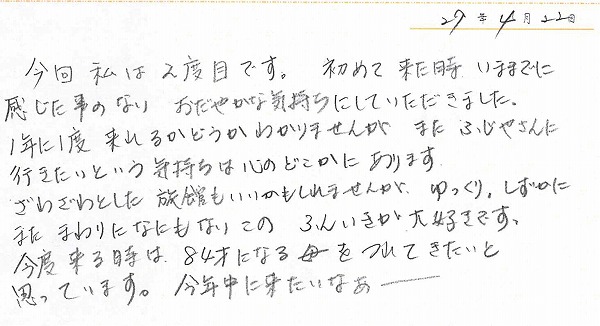 27年4月22日
今回 私は2度目です。 初めて来た時 いままでに
感じた事のない おだやかな気持ちにしていただきました。
1年に1度 来れるかどうかわかりませんが また ふじやさんに
行きたいという気持ちは心のどこかに あります
ざわざわとした 旅館もいいかもしれませんが、ゆっくり。しずかに
また まわりになにもない この ふんいきが 大好きです。
今度 来る時は 84才になる 母を つれてきたいと
思っています。 今年中に来たいなぁ──